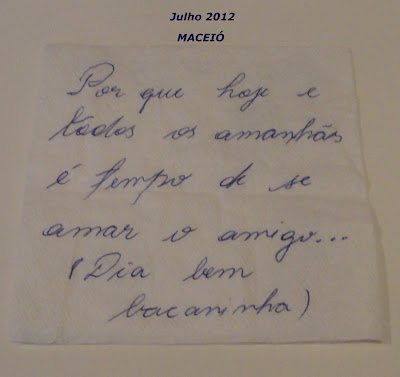 Julho 2012
MACEIÓ
Por que hoje e
todos os amanhãs
é tempo de se
amar o amigo...
(Dia bem
bacaninha)